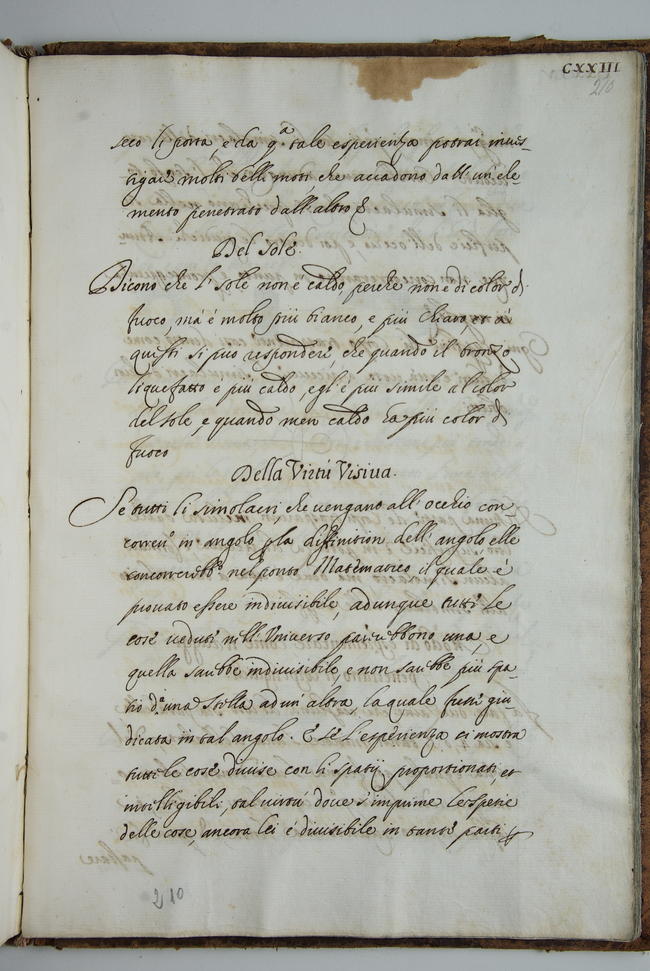 CXXIII
210
seco li porta e da q.ª tale esperienza potrai inues-
tigare molti belli moti, che accadono dall' un' ele-
mento penetrato dall' altro &
Del Sole.
Dicono che l' sole non é caldo, perche non é di color di
fuoco, ma é molto piú bianco, e piú chiaro et á
questi si puo respondere, che quando il bronzo
liquefatto é piú caldo, egl' é piu simile al color
del sole, e quando men caldo ha piú color di
fuoco
Della Virtú Visiua.
Se tutti li simolacri, che vengano all' occhio con-
correre in angolo p la diffinition dell' angolo elle
concorrerebb.º nel ponto Matematico il quale é
prouato essere indiuisibile, adunque tutte le
cose vedute nell' Vniverso parrebbono una, e
quella sarebbe indiuisibile, e non sarebbe piú spa-
tio d.ª una stella ad un' altra, la quale fusse giu-
dicata in tal angolo. E se l' esperienza ci mostra
tutte le cose diuise con li spatij proportionati, et
intelligibili, tal virtú doue s' imprime le spetie
delle cose, ancora lei é diuisibile in tante parti
210